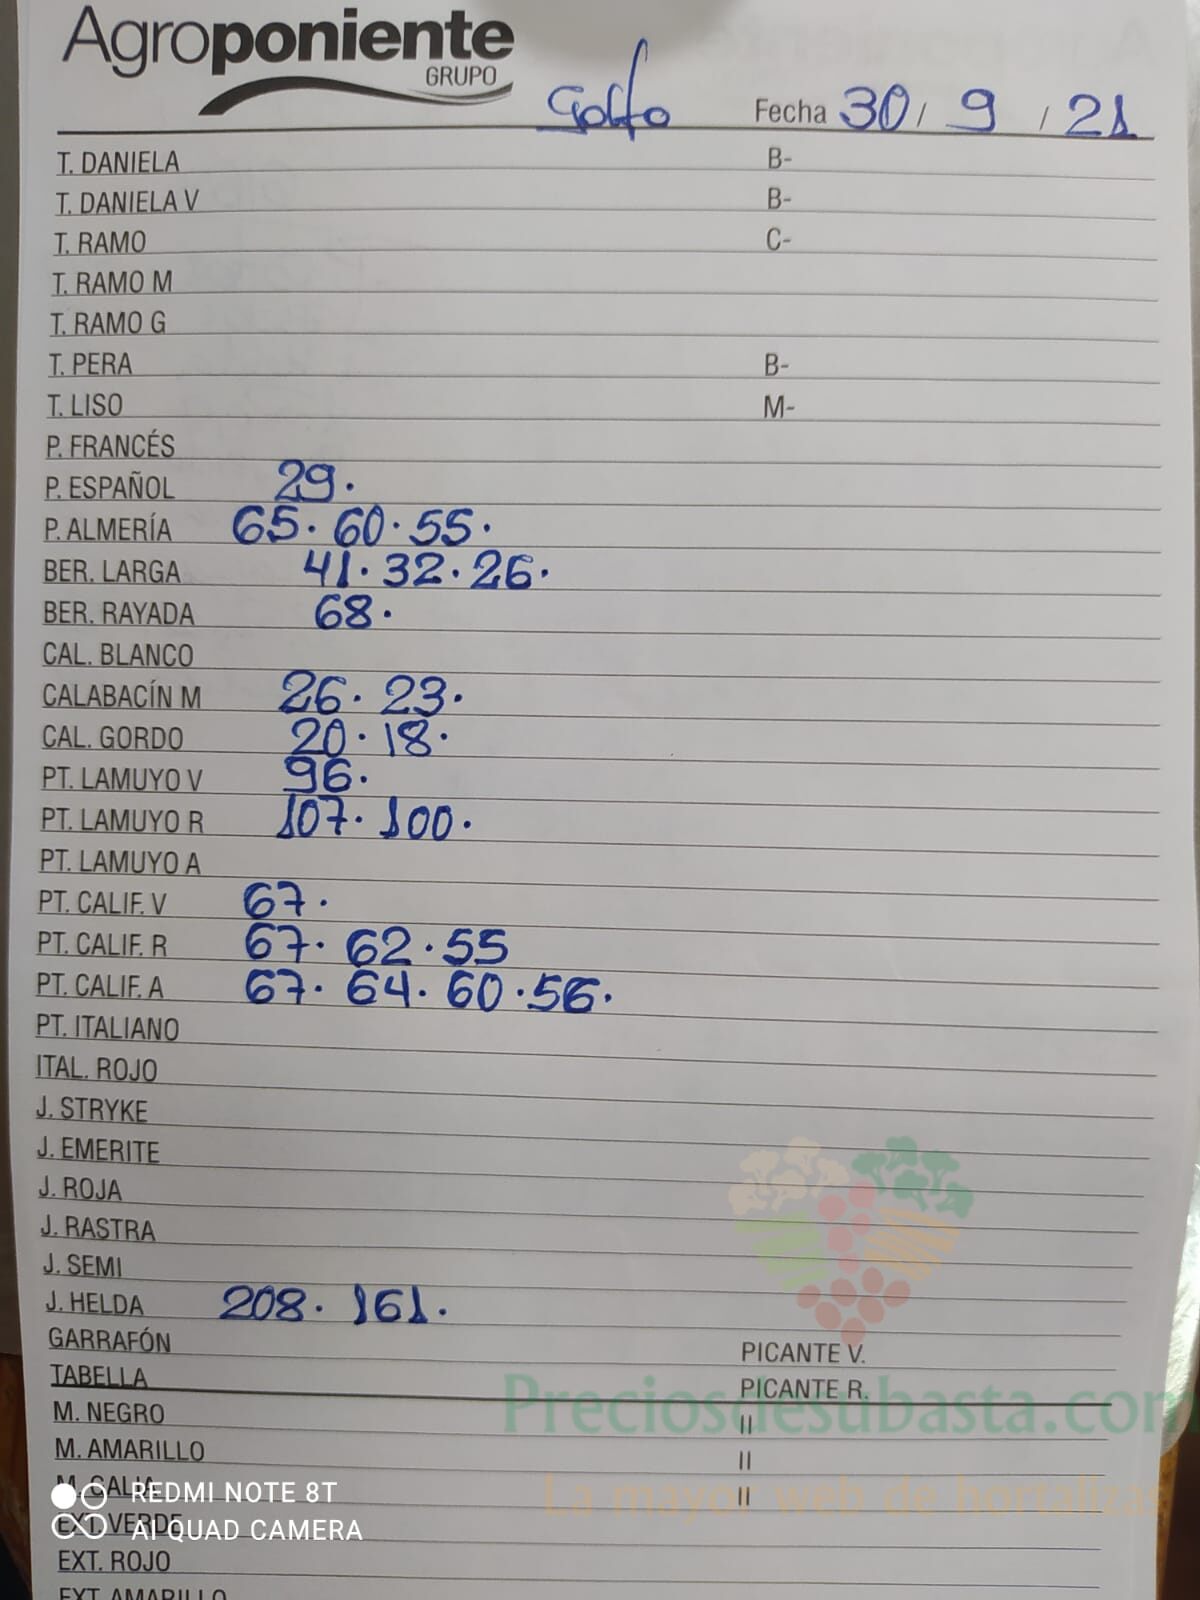 Agroponiente
GRUPO
Golfo Fecha 30/ 9 / 21
T. DANIELA B-
T. DANIELA V B-
T. RAMO C-
T. RAMO M
T. RAMO G
T. PERA B-
T. LISO M-
P. FRANCÉS
P. ESPAÑOL 29.
P. ALMERÍA 65. 60. 55.
BER. LARGA 41. 32. 26.
BER. RAYADA 68.
CAL. BLANCO
CALABACÍN M 26. 23.
CAL. GORDO 20. 18.
PT. LAMUYO V 96.
PT. LAMUYO R 107. 100.
PT. LAMUYO A
PT. CALIF. V 67.
PT. CALIF. R 67. 62. 55
PT. CALIF. A 67. 64. 60. 56.
PT. ITALIANO
ITAL. ROJO
J. STRYKE
J. EMERITE
J. ROJA
J. RASTRA
J. SEMI
J. HELDA 208. 161.
GARRAFÓN PICANTE V.
TABELLA PICANTE R.
Preciosdesubasta.com
M. NEGRO II
M. AMARILLO II
M. GALIA II
La mayor web de hortalizas
REDMI NOTE 8T
EXT. VERDE
AI QUAD CAMERA
EXT. ROJO
EXT. AMARILLO